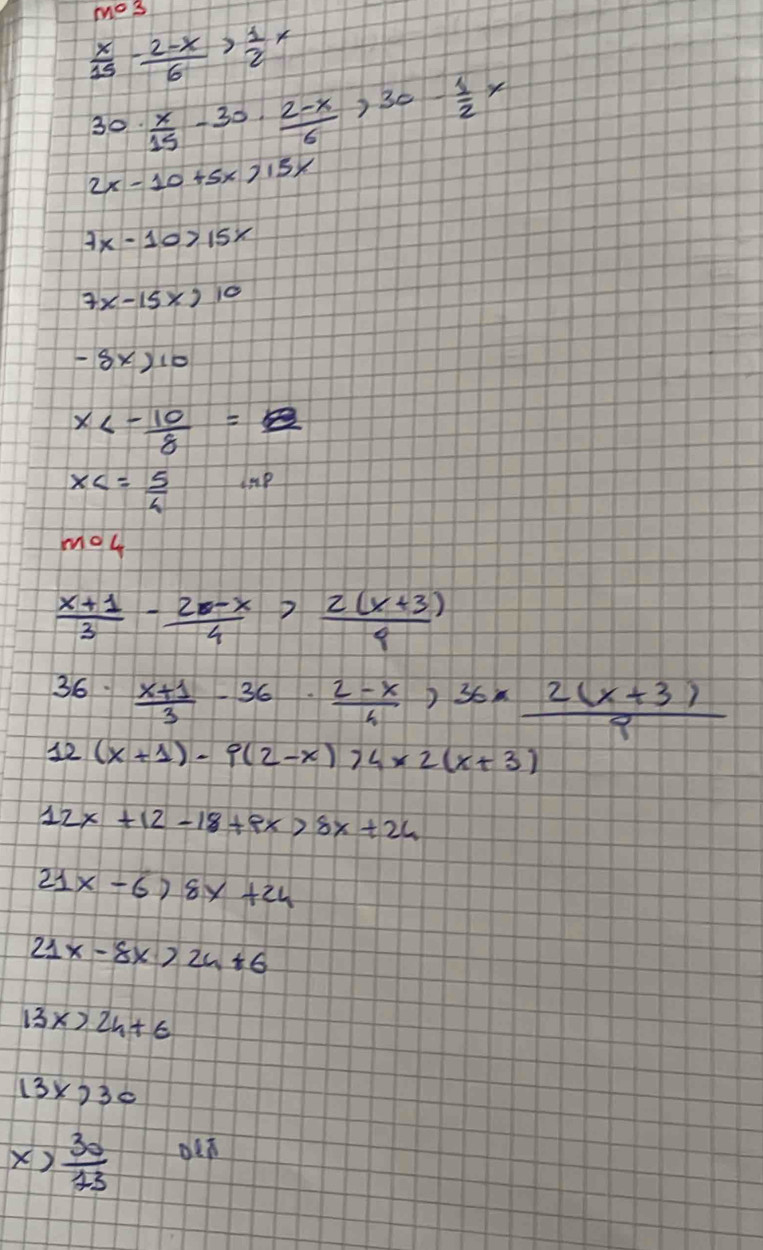 mo3
x/15 - 2-x/6 > 1/2 x
30 · x/15 - 30 · 2-x/6 > 30 - 1/2 x
2x - 10 + 5x > 15x
7x - 10 > 15x
7x - 15x > 10
- 8x > 10
x < - 10/8 =
x < = 5/4 imp
mo4
x+1/3 - 2-x/4 > 2(x+3)/9
36 · x+1/3 - 36 · 2-x/4 > 36 × 2(x+3)/9
12 (x+1) - 9(2-x) > 4 × 2(x+3)
12x + 12 - 18 + 9x > 8x + 24
21x - 6 > 8x + 24
21x - 8x > 24 + 6
13x > 24 + 6
13x > 30
x > 30/13